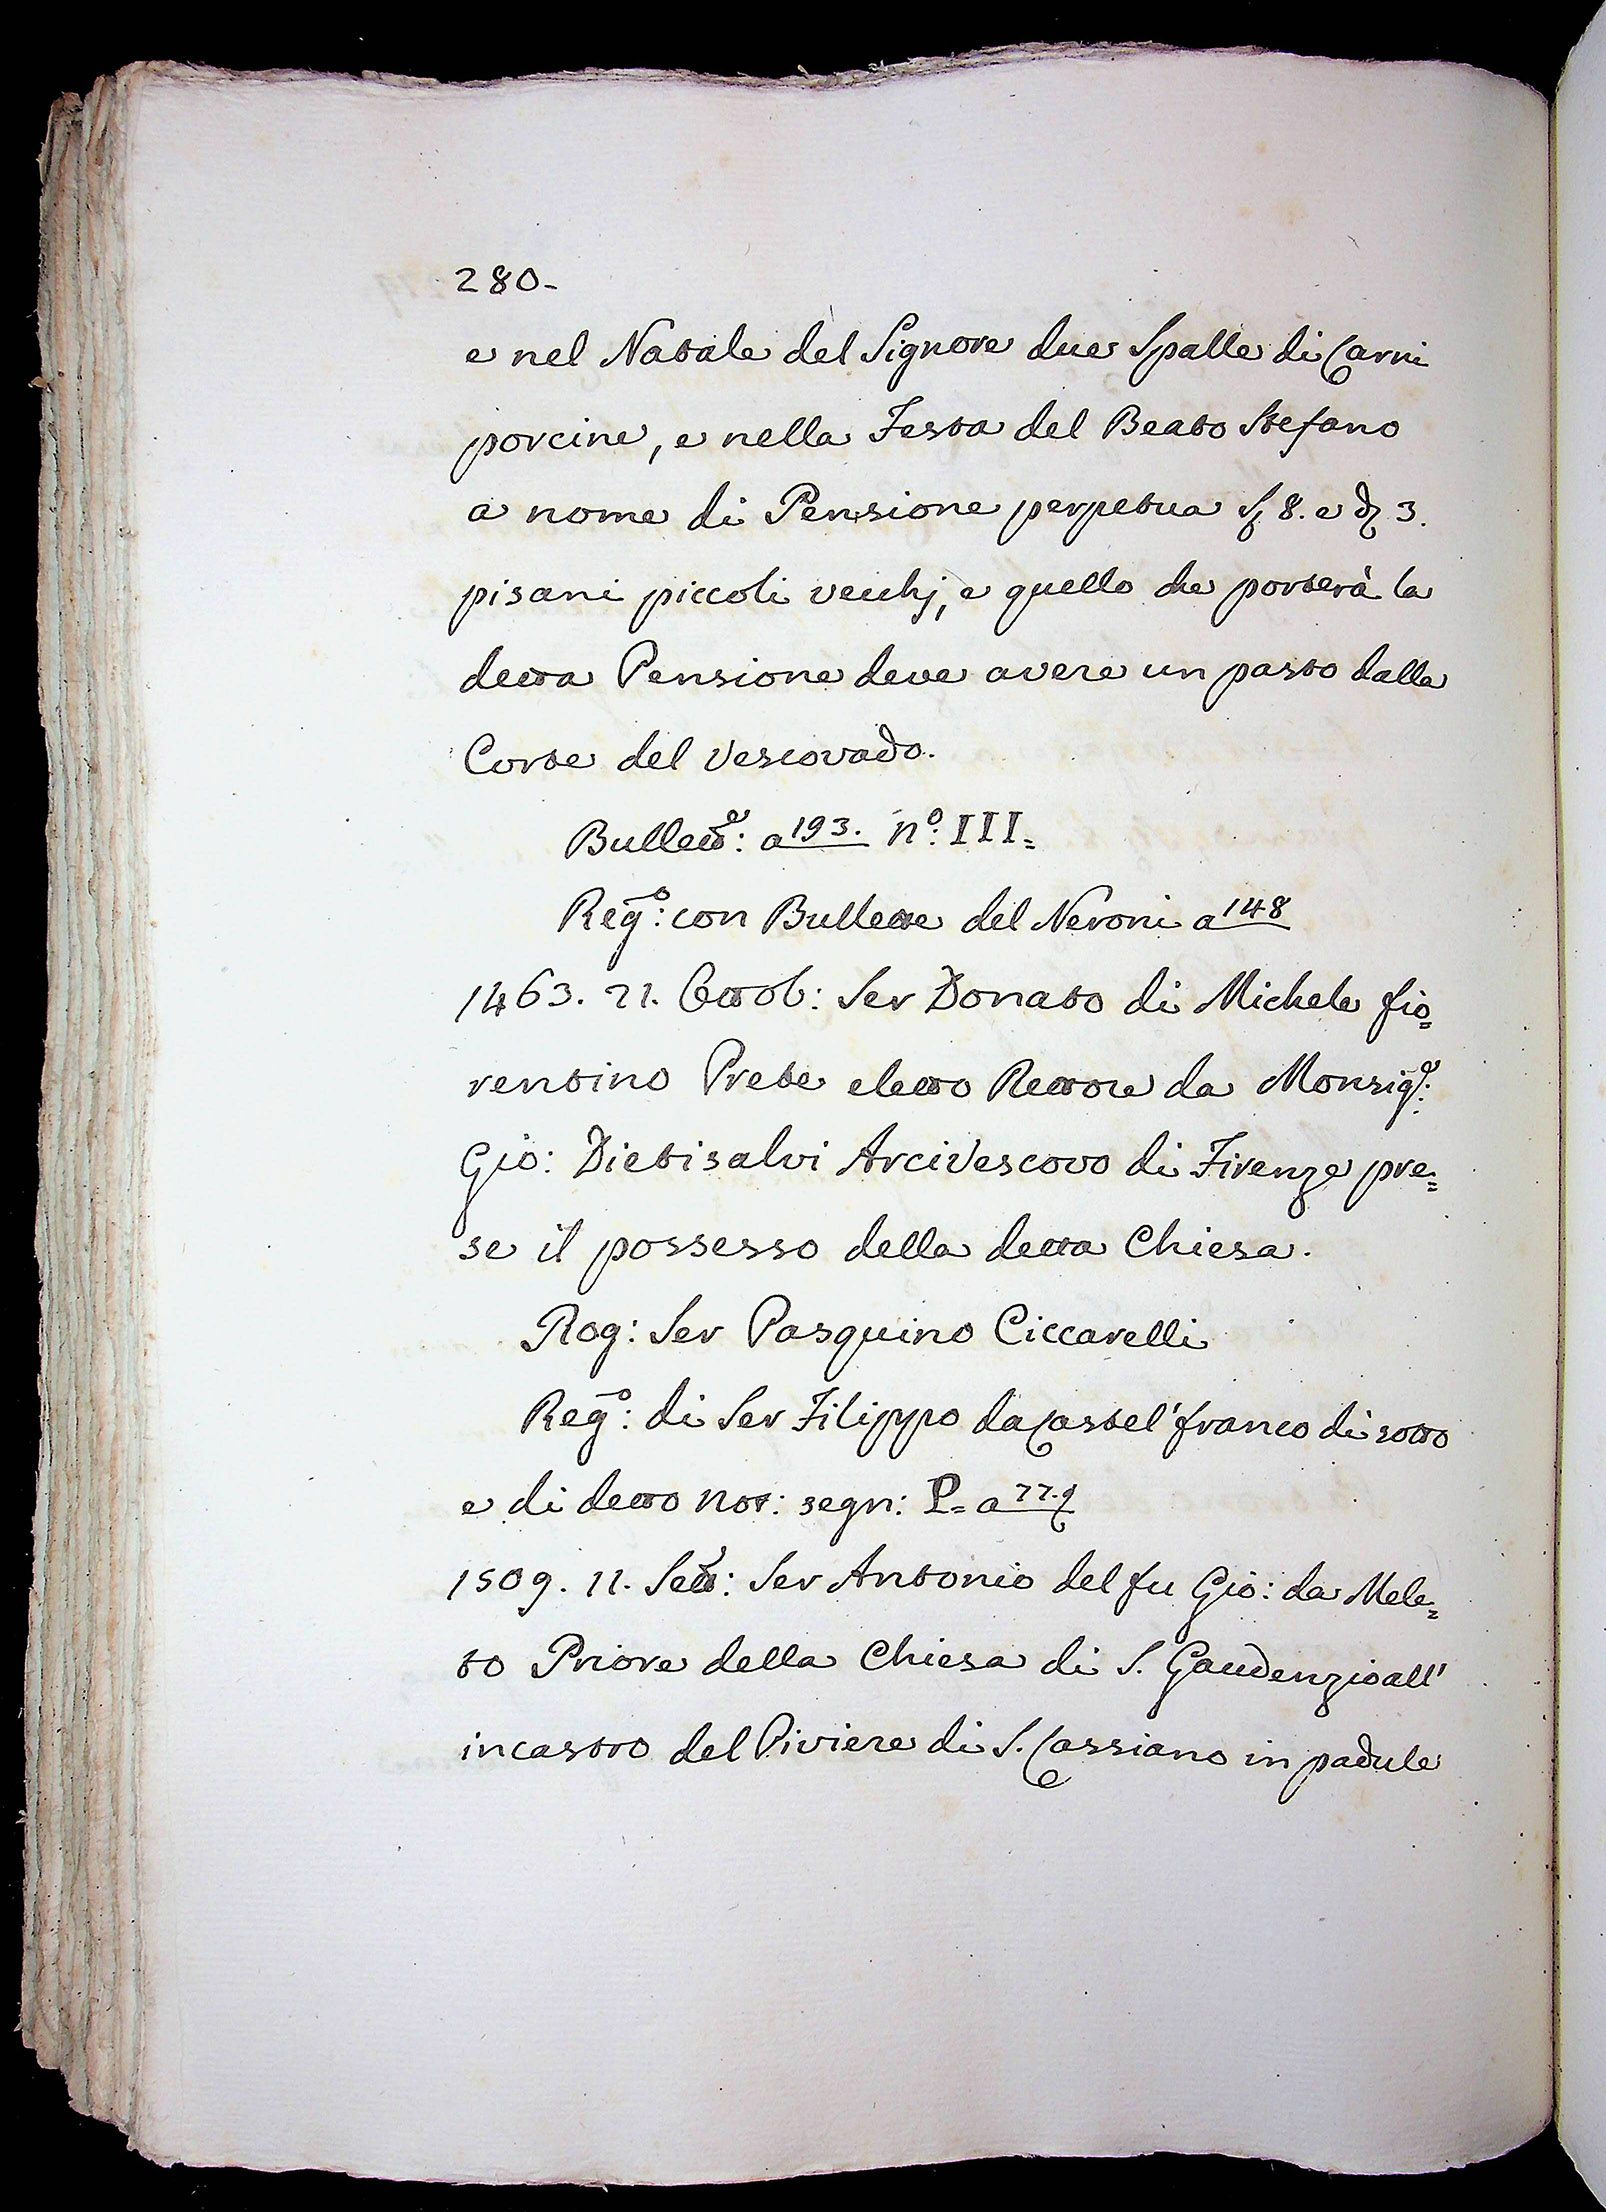 280-
e nel Natale del Signore due Spalle di Carni
porcine, e nella Festa del Beato Stefano
a nome di Pensione perpetua S 8. e d 3.
pisani piccoli vecchj, e quello che porterà la
detta Pensione deve avere un pasto dalla
Corte del Vescovado.
Bullett.e: a 193. n.o: III=
Reg.o: con Bullette del Neroni a 148
1463. 21. Ottob: Ser Donato di Michele fio=
rentino Prete eletto Rettore da Monsig.e:
Gio: Dietisalvi Arcivescovo di Firenze pre=
se il possesso della detta Chiesa.
Rog: Ser Pasquino Ciccarelli
Reg.o: di Ser Filippo da Castel'franco di sotto
e di detto Not: segn: P= a
1509. 11. Sett.e: Ser Antonio del fu Gio: da Mele=
to Priore della Chiesa di S. Gaudenzio all'
incastro del Piviere di S. Cassiano in padule